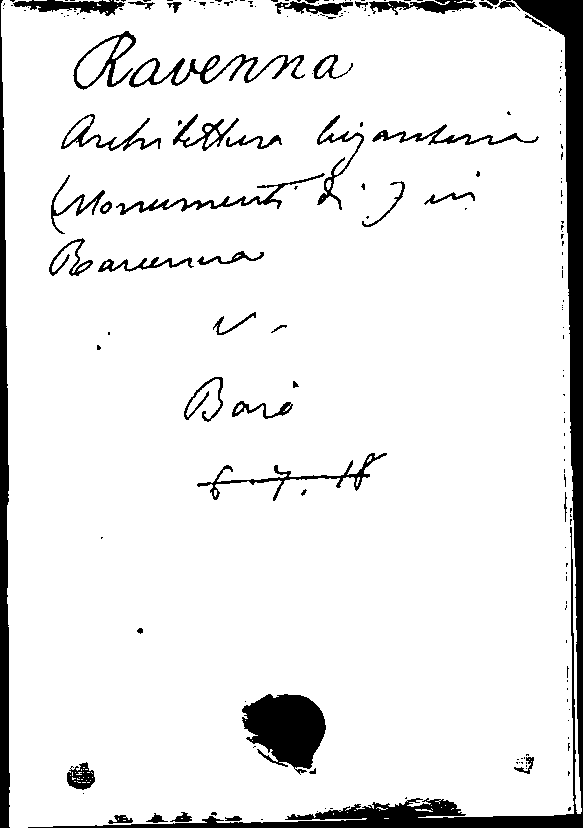 Ravenna
Architettura bizantina
(Monumenti di) in
Ravenna
V.
6.7.18